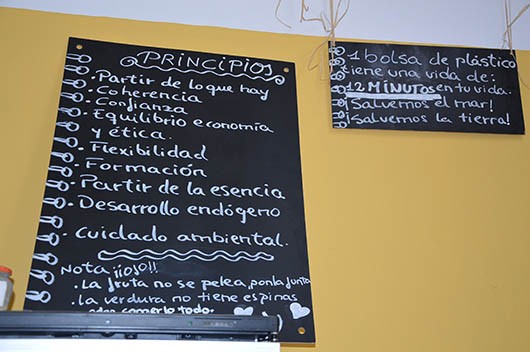 PRINCIPIOS
· Partir de lo que hay
· Coherencia
· Confianza
· Equilibrio economía
y ética.
· Flexibilidad
· Formación
· Partir de la esencia
· Desarrollo endógeno
· Cuidado ambiental.
Nota ¡¡OJO!!
· la fruta no se pelea, ponla junta
· la verdura no tiene espinas
comerlo todo.
1 bolsa de plástico
tiene una vida de:
12 MINUTOS en tu vida.
¡Salvemos el mar!
¡Salvemos la tierra!